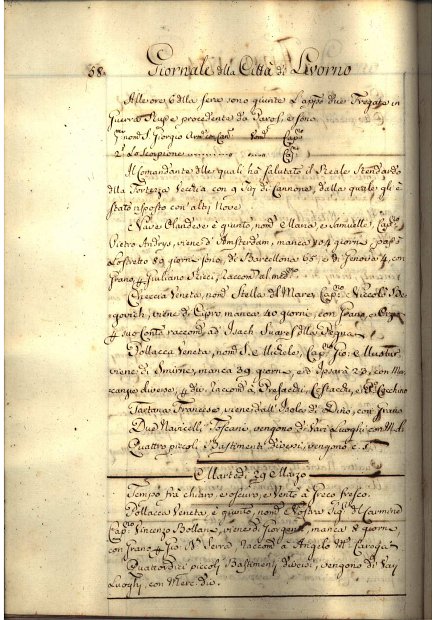 58.
Giornali della Città di Livorno
Alle ore 6 della sera sono giunte l'app. due Fregate in
Guerra Russe procedente da Paros, e sono
nom. S. Giorgio Arm. con Can. Nom. Cap.
2. Lo Scorpione
Il Comandante delle quali ha salutato il Reale Stendardo
della Fortezza Vecchia con 9 Tiri di Cannone, dalla quale gli è
stato risposto con altri Nove
Nave Olandese è giunto, nom. Maria, e Samuelle, Cap.
Pietro Andrys, viene d'Amsterdam, manca 104 giorni, passò
lo stretto 89 giorni sono, di Barcellona 65, e di Genova 4, con
Grano Giuliano Ricci, Raccom. al med.
Checcia Veneta, nom. Stella del Mare, Cap. Niccolò
viene di Cipro manca 40 giorni, con Grano, e
suo Conto raccom. ad Isach Suares della
Pollacca Veneta, nom. S. Michele, Cap. Gio.
viene di Smirne, manca 39 giorni, e d'Ipsarà 23, con Mer-
canzie diverse, div. raccom. a
Tartana Francese, viene dall'Isola di con Grano
Due Navicelli Toscani, vengono di Varj Luoghi con M. d.
Quattro piccoli Bastimenti diversi, vengono c. s.
Martedì 29 Marzo
Tempo frà chiaro, e oscuro, e Vento à Greco fresco.
Pollacca Veneta, è giunto, nom. Nostra Sig. del Carmine
Cap. Vincenzo Bollani, viene di Giorgenti, manca 8 giorni,
con Grano Gio. Serra Raccom. à Angelo M.
Quattordici piccoli Bastimenti diversi, vengono di Varj
Luoghi, con Merc. div.